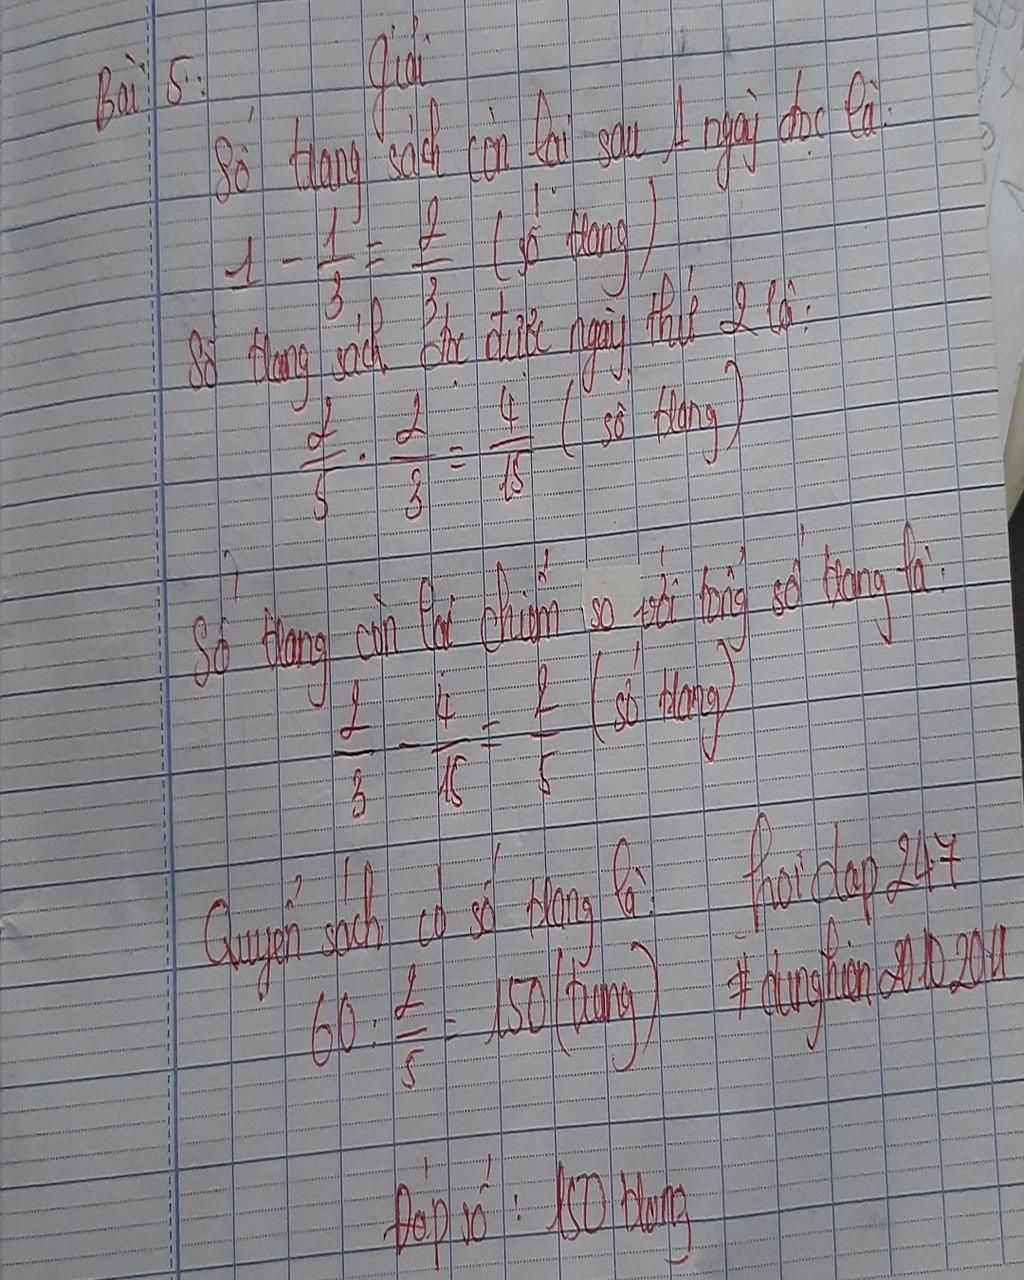 Bài 5:
Giải
Số trang sách còn lại sau 1 ngày đọc là:
1 - 1/3 = 2/3 (số trang)
Số trang sách đọc được ngày thứ 2 là:
2/5 . 2/3 = 4/15 (số trang)
Số trang còn lại chiếm so với tổng số trang là:
2/3 - 4/15 = 2/5 (số trang)
Quyển sách có số trang là:
60 : 2/5 = 150 (trang)
hoidap247
# dunghien20102011
Đáp số : 150 trang